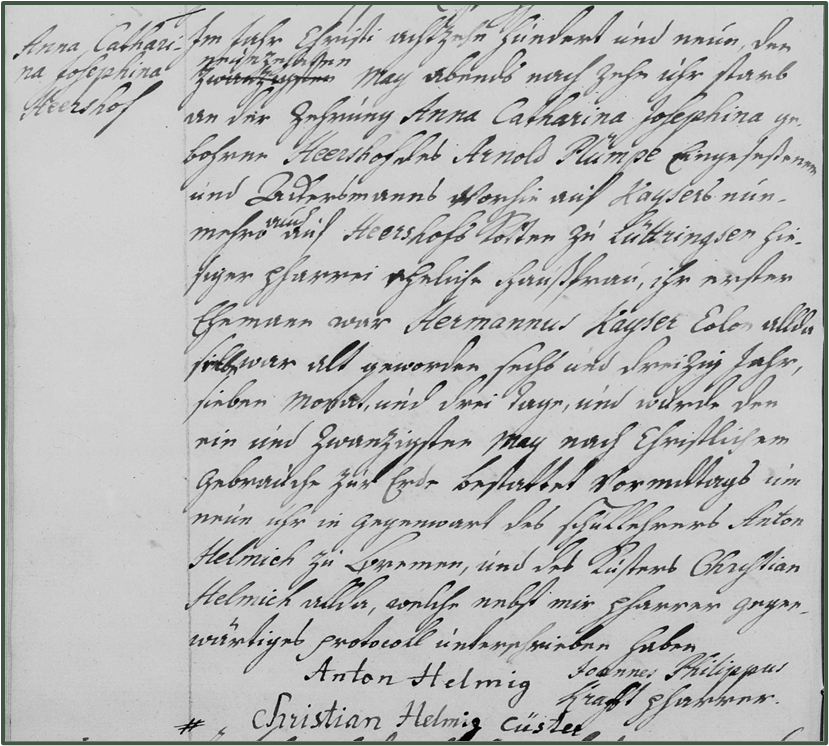 Anna Cathari-
na Josephina
Heershof
Im Jahr Christi achtzehn hundert und neun, den
neunzehnten
zwanzigsten May abends nach zehn uhr starb
an der Zehrung Anna Catharina Josephina ge-
bohrne Heershof des Arnold Plümpe Eingesessenen
und Ackersmanns vorhin auf Kaysers nun-
mehro auch auf Heershofs Kotten zu Lüttringsen hie-
siger pfarrei eheliche Haußfrau, ihr erster
Ehemann war Hermannus Kayser Colon allda
war alt geworden sechs und dreizig Jahr,
sieben Monat, und drei Tage, und wurde den
ein und zwanzigsten May nach Christlichem
Gebrauche zur Erde bestattet Vormittags um
neun uhr in gegenwart des schullehrers Anton
Helmich zu Bremen, und des Küsters Christian
Helmich allda, welche nebst mir pfarrer gegen-
wärtiges protocoll unterschrieben haben
Anton Helmig
Joannes Philippus
Krafft pfarrer.
# Christian Helmig Cüster